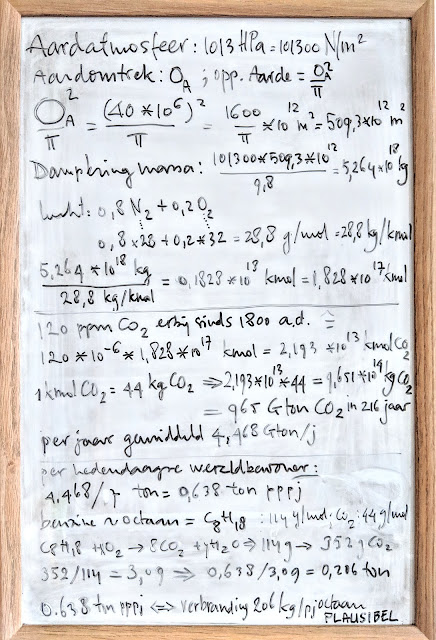 Aardatmosfeer: 1013 HPa = 101300 N/m²
Aardomtrek: O_A ; opp. Aarde = O_A²/π
O_A²/π = (40*10⁶)²/π = 1600/π *10¹² m² = 509,3*10¹² m²
Dampkring massa: 101300*509,3*10¹²/9,8 = 5,264*10¹⁸ kg
lucht: 0,8 N₂ + 0,2 O₂
0,8*28 + 0,2*32 = 28,8 g/mol = 28,8 kg/kmol
5,264*10¹⁸ kg / 28,8 kg/kmol = 0,1828*10¹⁸ kmol = 1,828*10¹⁷ kmol
120 ppm CO₂ erbij sinds 1800 a.d. =
120*10⁻⁶*1,828*10¹⁷ kmol = 2,193*10¹³ kmol CO₂
1 kmol CO₂ = 44 kg CO₂ ⇒ 2,193*10¹³*44 = 9,651*10¹⁴ kg CO₂
= 965 Gton CO₂ in 216 jaar
per jaar gemiddeld 4,468 Gton/j
per hedendaagse wereldbewoner:
4,468/7 ton = 0,638 ton pppj
benzine ≈ octaan = C₈H₁₈ : 114 g/mol; CO₂: 44 g/mol
C₈H₁₈ + O₂ → 8CO₂ + 9H₂O ⇒ 114g → 352g CO₂
352/114 = 3,09 ⇒ 0,638/3,09 = 0,206 ton
0.638 ton pppj ⇔ verbranding 206 kg/pj octaan
PLAUSIBEL